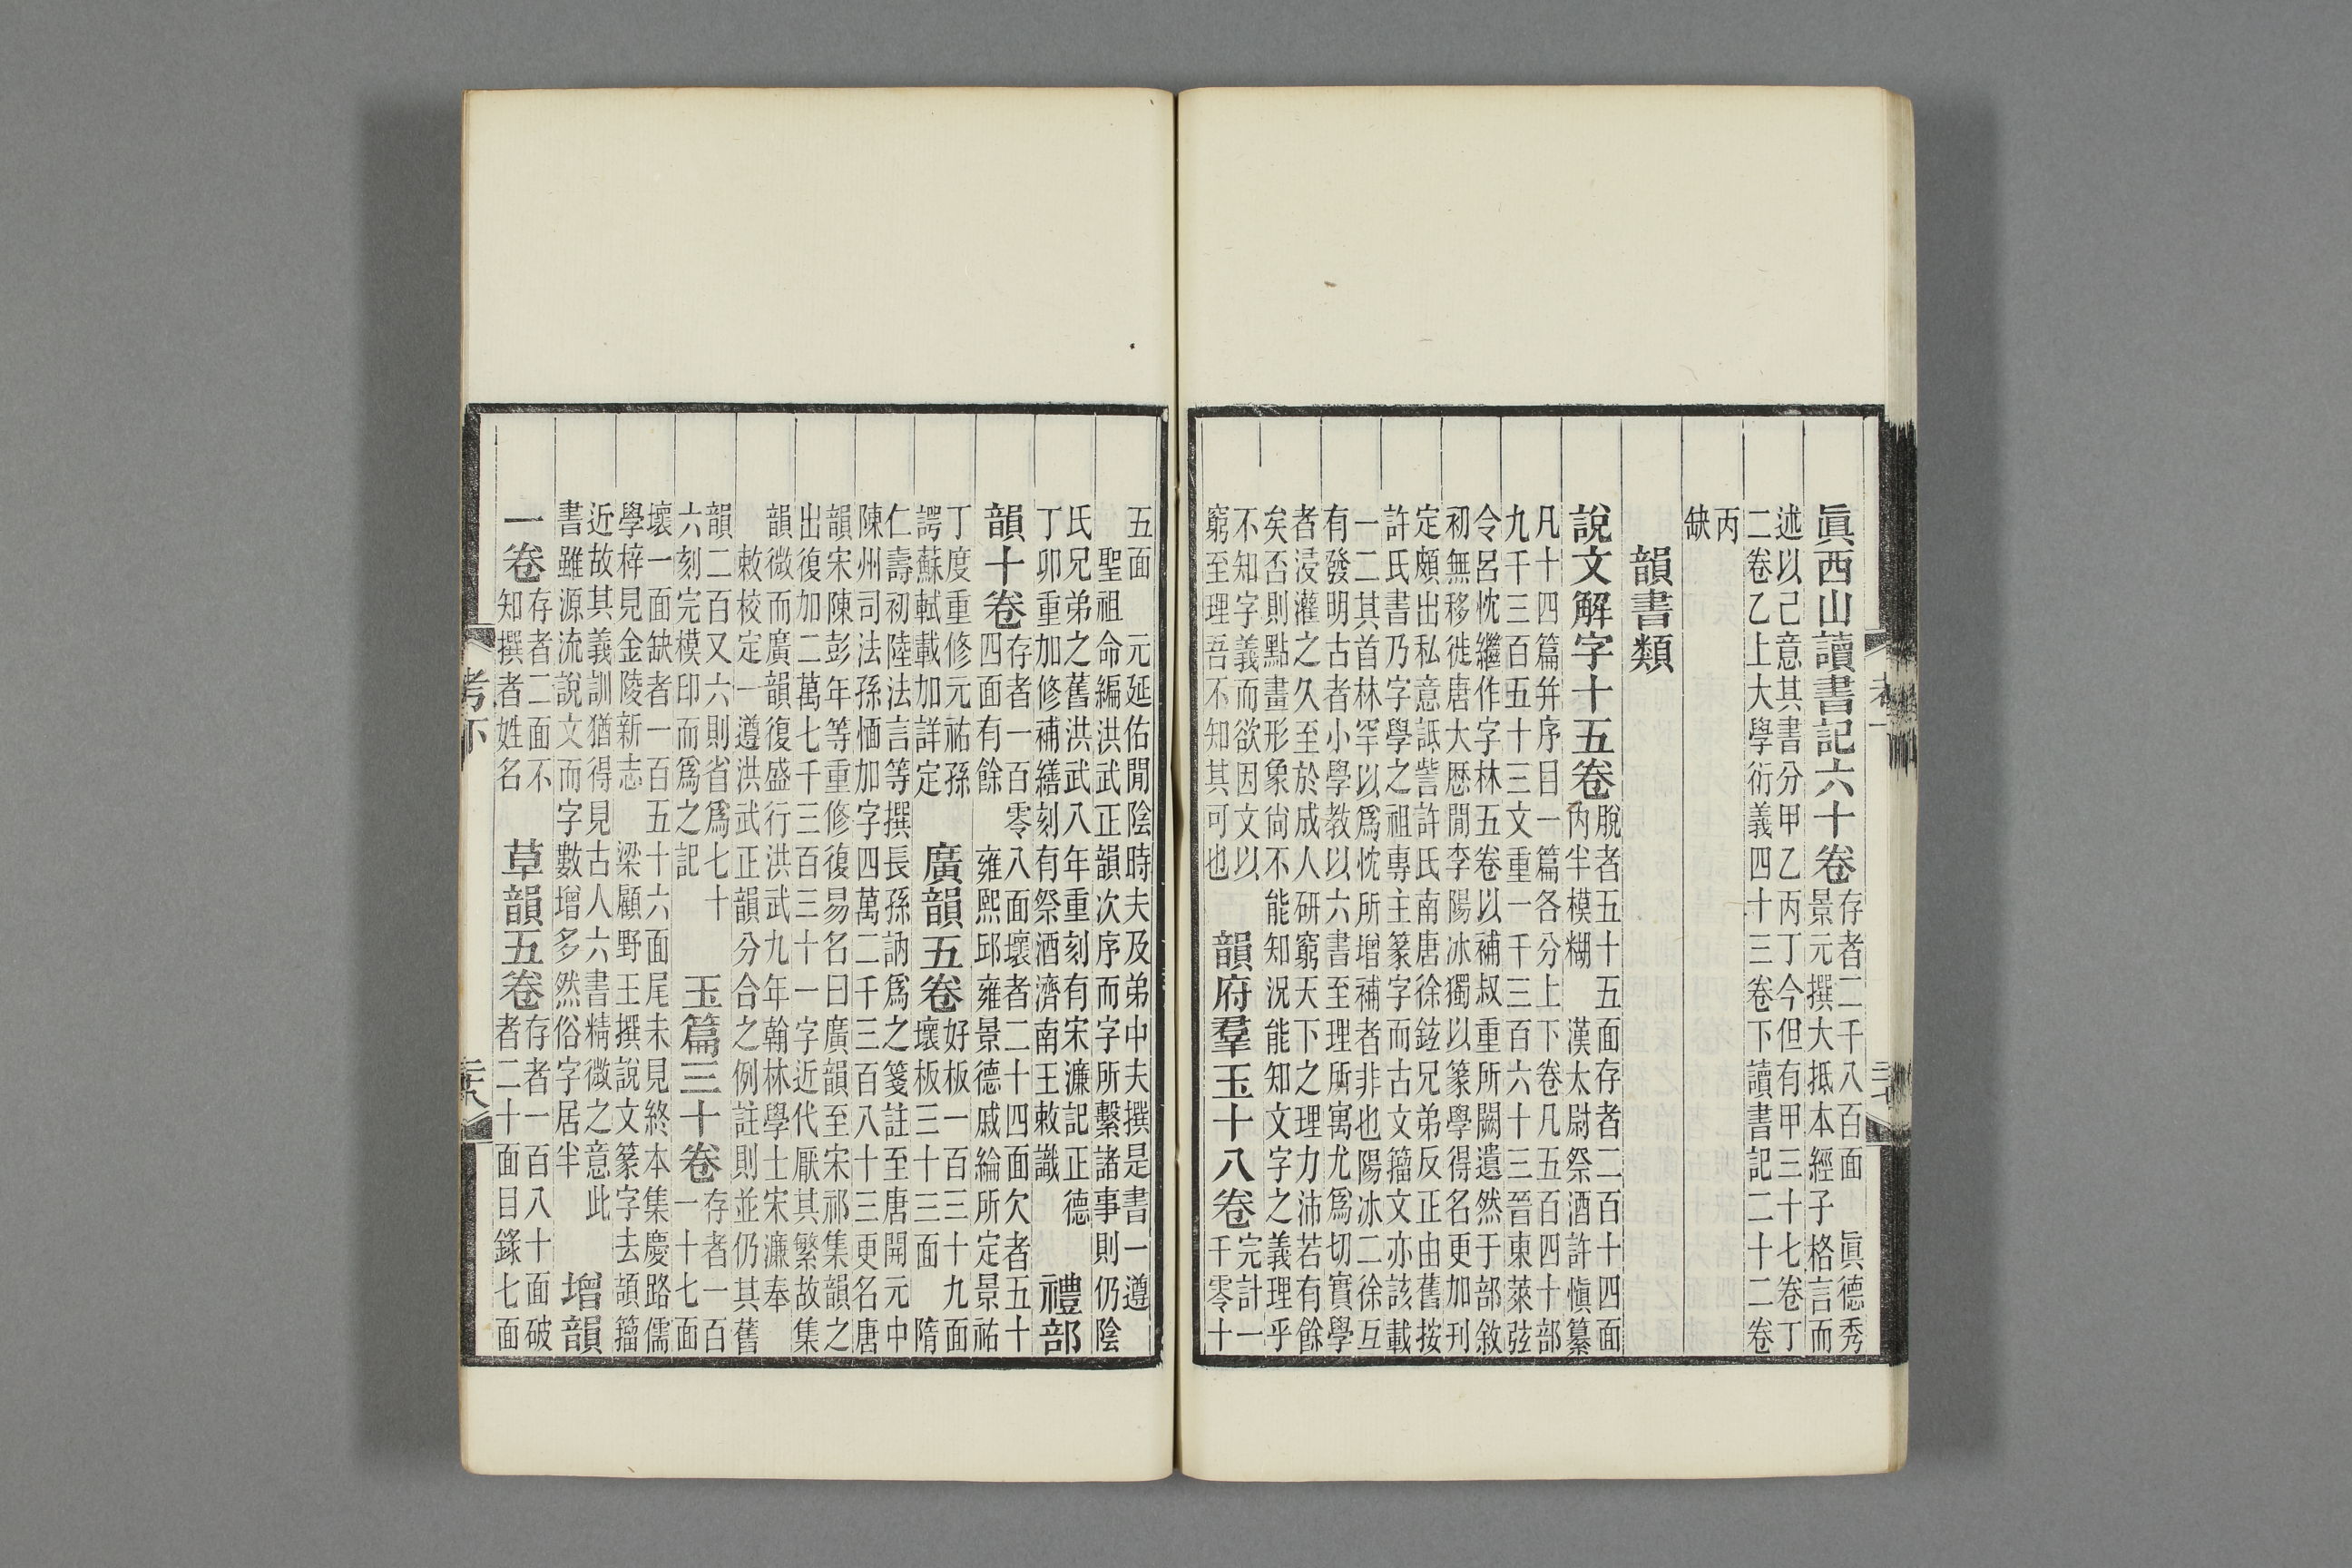 眞西山讀書記六十卷
存者二千八百面　眞德秀
景元撰大抵本經子格言而
述以己意其書分甲乙丙丁今但有甲三十七卷丁
二卷乙上大學衍義四十三卷下讀書記二十二卷
丙
缺
韻書類
說文解字十五卷
脫者五十五面存者二百十四面
內半模糊　漢太尉祭酒許愼纂
凡十四篇幷序目一篇各分上下卷凡五百四十部
九千三百五十三文重一千三百六十三晉東萊弦
令呂忱繼作字林五卷以補叔重所闕遺然于部敘
初無移徙唐大歷閒李陽冰獨以篆學得名更加刊
定頗出私意詆訾許氏南唐徐鉉兄弟反正由舊按
許氏書乃字學之祖專主篆字而古文籀文亦該載
一二其首林罕以爲忱所增補者非也陽冰二徐互
有發明古者小學教以六書至理所寓尤爲切實學
者浸灌之久至於成人研窮天下之理力沛若有餘
矣否則點畫形象尙不能知況能知文字之義理乎
不知字義而欲因文以
窮至理吾不知其可也
韻府羣玉十八卷
完計一
千零十
五面　元延佑閒陰時夫及弟中夫撰是書一遵
聖祖命編洪武正韻次序而字所繫諸事則仍陰
氏兄弟之舊洪武八年重刻有宋濂記正德
丁卯重加修補繕刻有祭酒濟南王敕識
禮部
韻十卷
存者一百零八面壞者二十四面欠者五十
四面有餘　雍熙邱雍景德戚綸所定景祐
丁度重修元祐孫
諤蘇軾載加詳定
廣韻五卷
好板一百三十九面
壞板三十三面　隋
仁壽初陸法言等撰長孫訥爲之箋註至唐開元中
陳州司法孫愐加字四萬二千三百八十三更名唐
韻宋陳彭年等重修復易名曰廣韻至宋祁集韻之
出復加二萬七千三百三十一字近代厭其繁故集
韻微而廣韻復盛行洪武九年翰林學士宋濂奉
敕校定一遵洪武正韻分合之例註則並仍其舊
韻二百又六則省爲七十
六刻完模印而爲之記
玉篇三十卷
存者一百
一十七面
壞一面缺者一百五十六面尾未見終本集慶路儒
學梓見金陵新志　梁顧野王撰說文篆字去頡籀
近故其義訓猶得見古人六書精微之意此
書雖源流說文而字數增多然俗字居半
增韻
一卷
存者二面不
知撰者姓名
草韻五卷
存者一百八十面破
者二十面目錄七面
考下